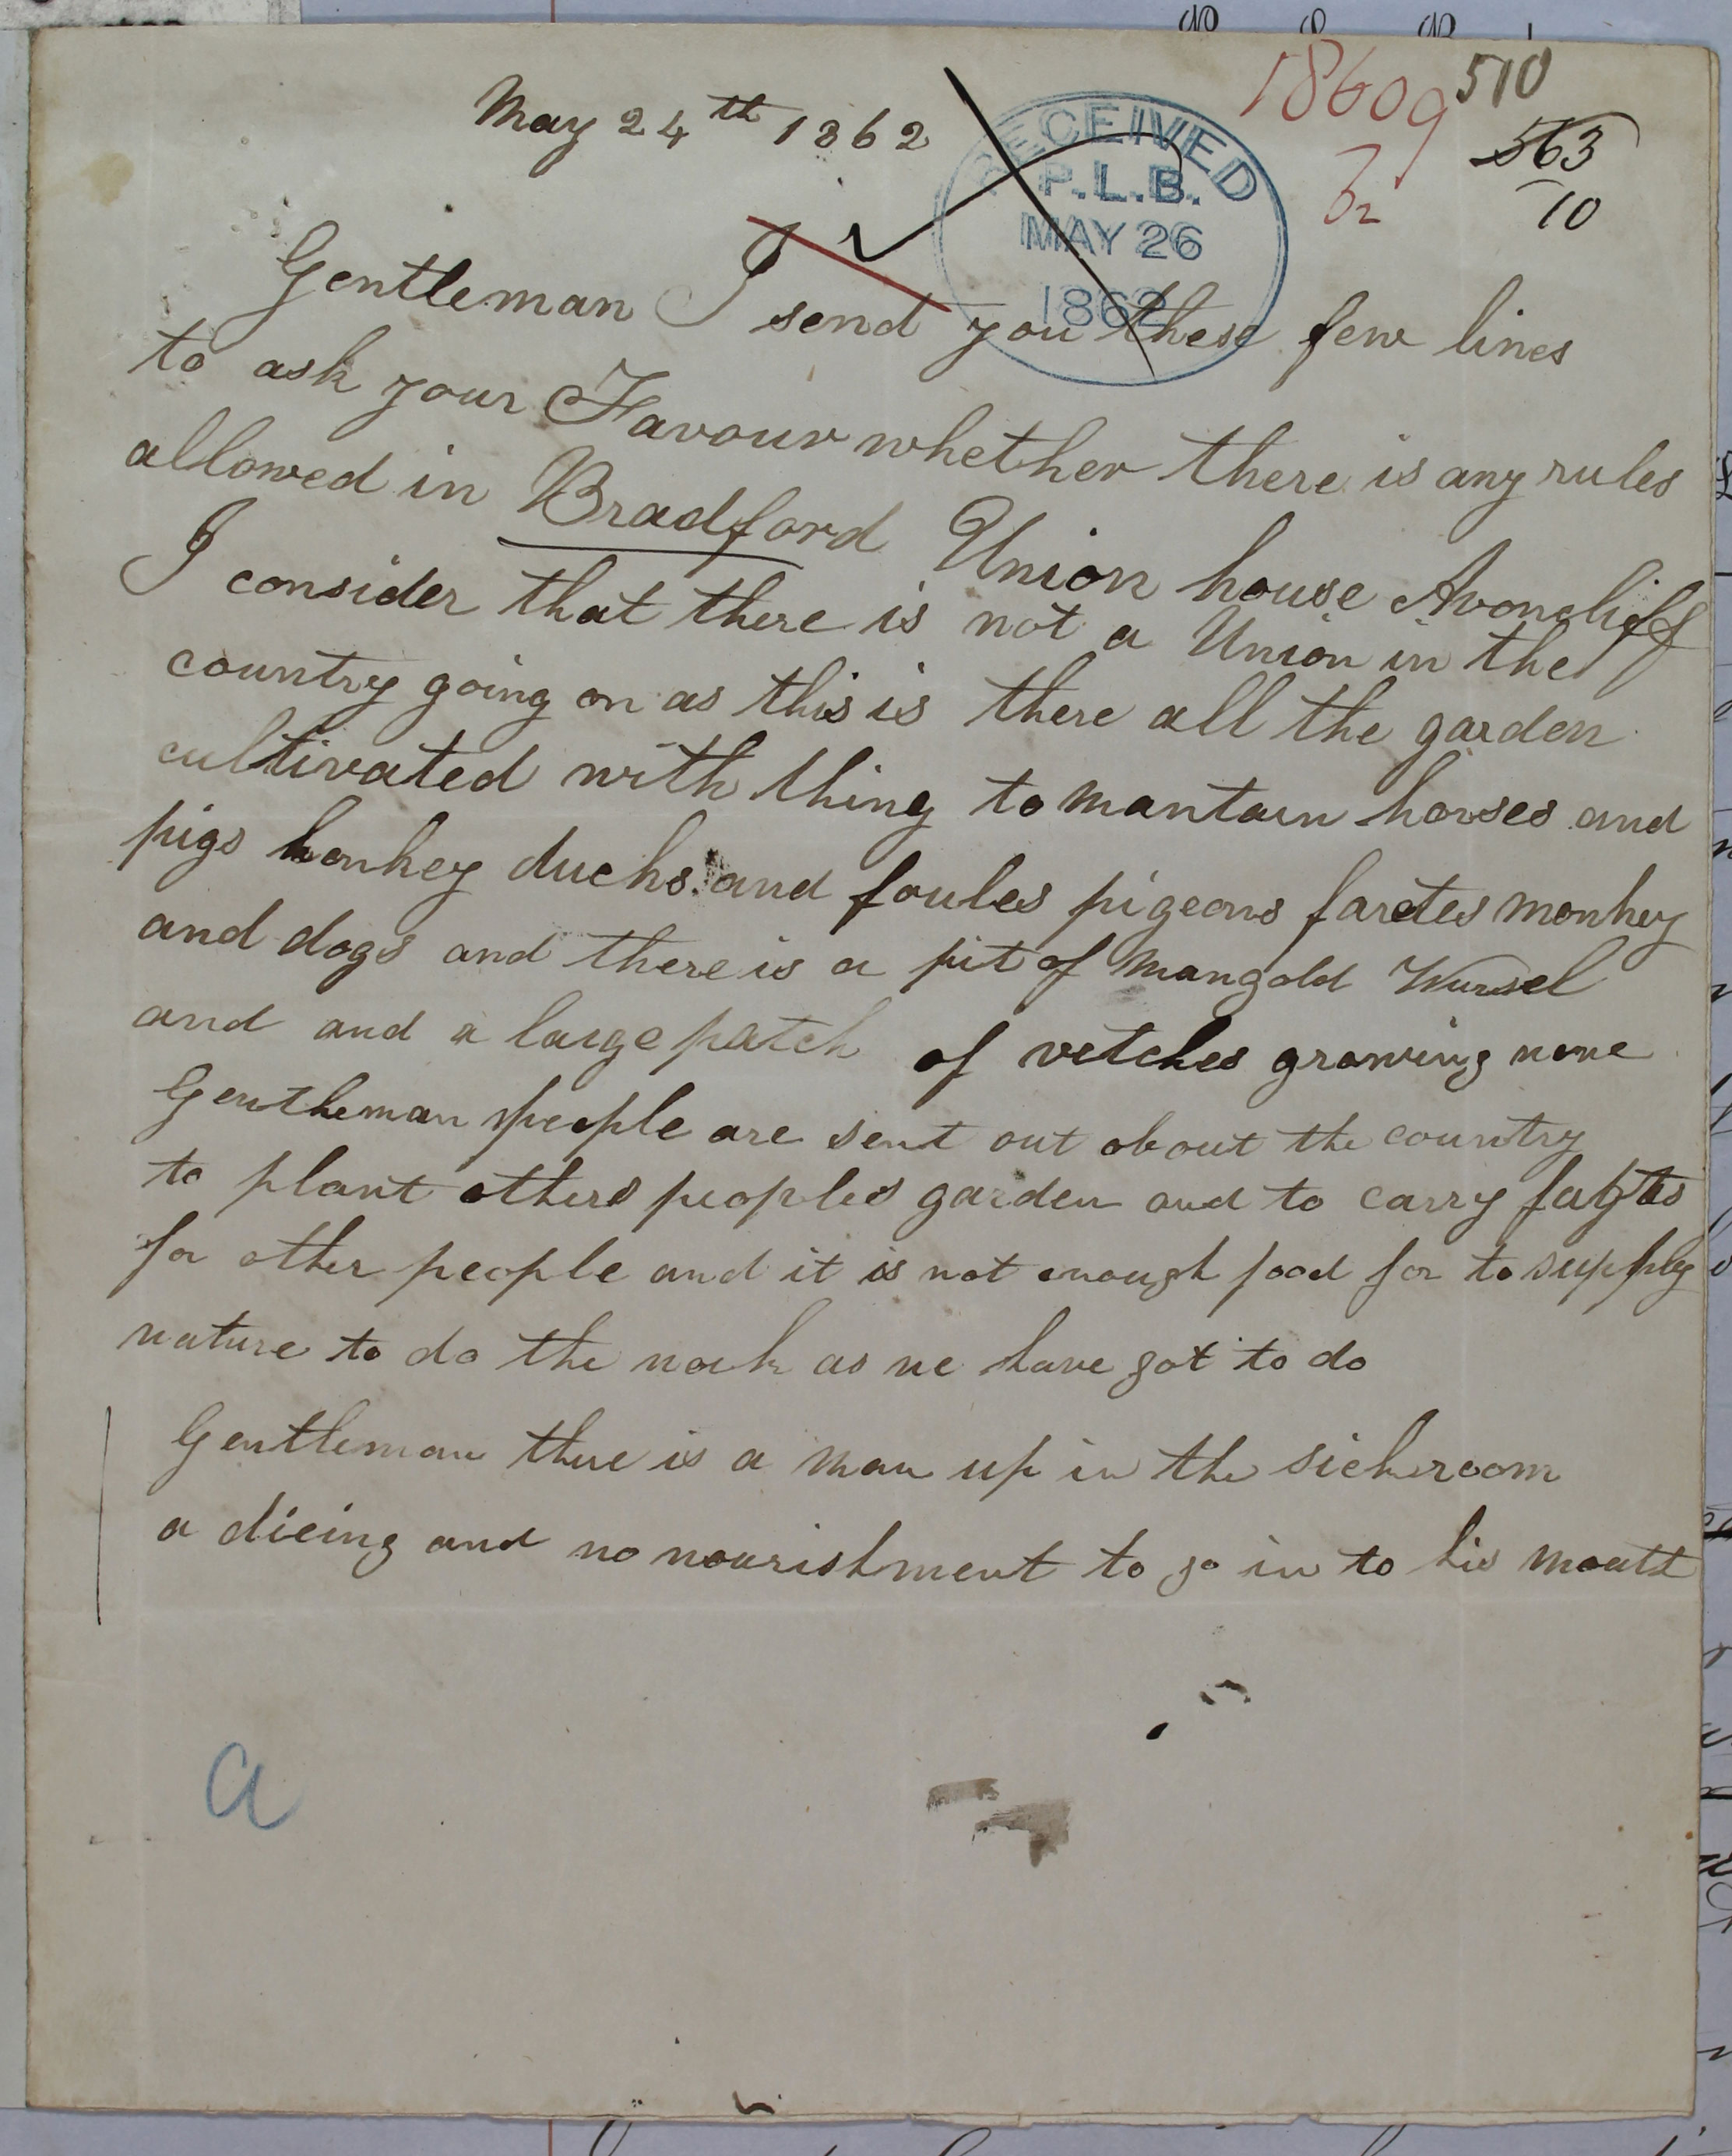 18609
510
563
10
62
May 24th 1862
RECEIVED
P.L.B.
MAY 26
1862
Gentleman I send you these few lines
to ask your Favour whether there is any rules
allowed in Bradford Union house Avoncliff
I consider that there is not a Union in the
country going on as this is there all the garden
cultivated with thing to mantain horses and
pigs donkey ducks and foules pigeons faretes monkey
and dogs and there is a pit of Mangold Wursel
and and a large patch of vetches growing now
Gentleman people are sent out about the country
to plant others peoples garden and to carry
for other people and it is not enough food for to supply
nature to do the work as we have got to do
Gentleman there is a man up in the sick room
a dieing and no nourishment to go in to his mouth
a